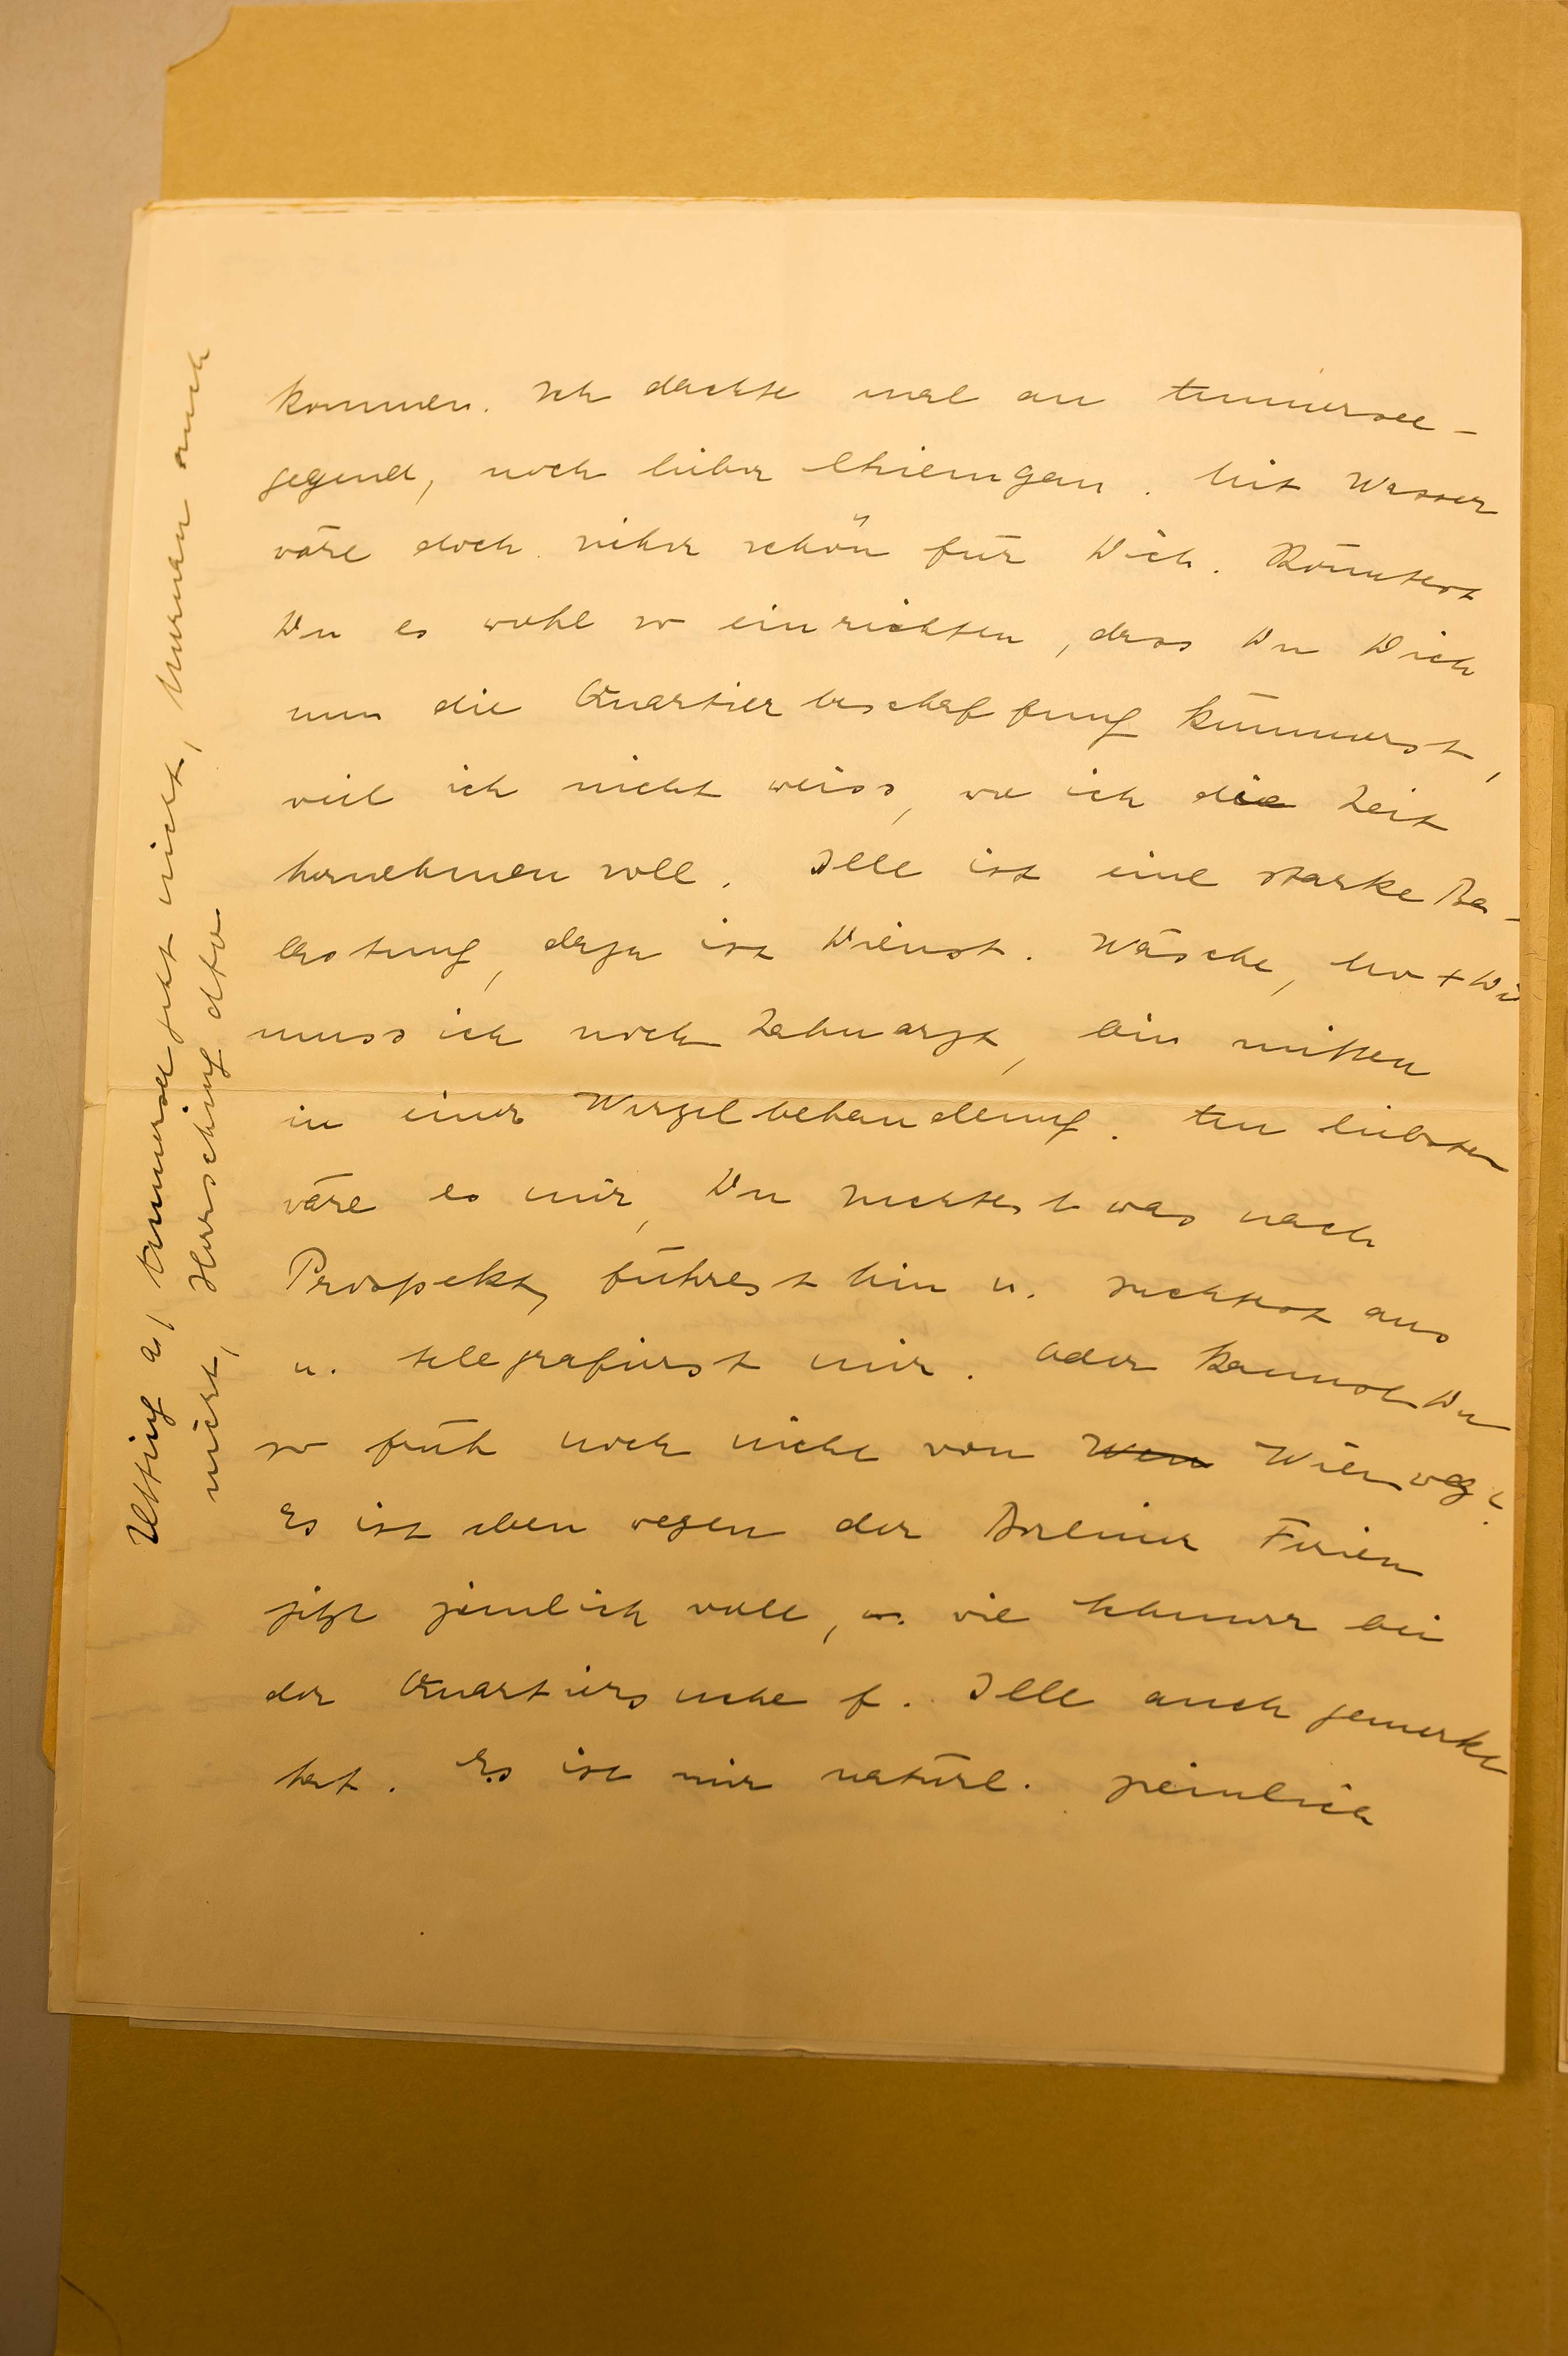 kommen. Ich dachte mal an Ammersee-
gegend, noch lieber Chiemgau. Mit Wasser
wäre doch sicher schön für Dich. Könntest
Du es wohl so einrichten, dass Du Dich
um die Quartierbeschaffung kümmerst,
weil ich nicht weiss, wo ich die Zeit
hernehmen soll. Ille ist eine starke Be-
lastung, dazu ist Dienst. Wäsche, Mo + Di
muss ich noch Zahnarzt, bin mitten
in einer Wurzelbehandlung. Am liebsten
wäre es mir, Du suchtest was nach
Prospekt, führest hin u. suchtest aus
u. telegrafierst mir. Oder kannst Du
so früh noch nicht von Wen Wien weg?
Es ist eben wegen der Berliner Ferien
jetzt ziemlich voll, wie Schwarz bei
der Quartiersuche f. Ille auch gemerkt
hat. Es ist mir natürl. peinlich
Utting a/ Ammersee geht nicht, Murnau auch
nicht, Herrsching dto